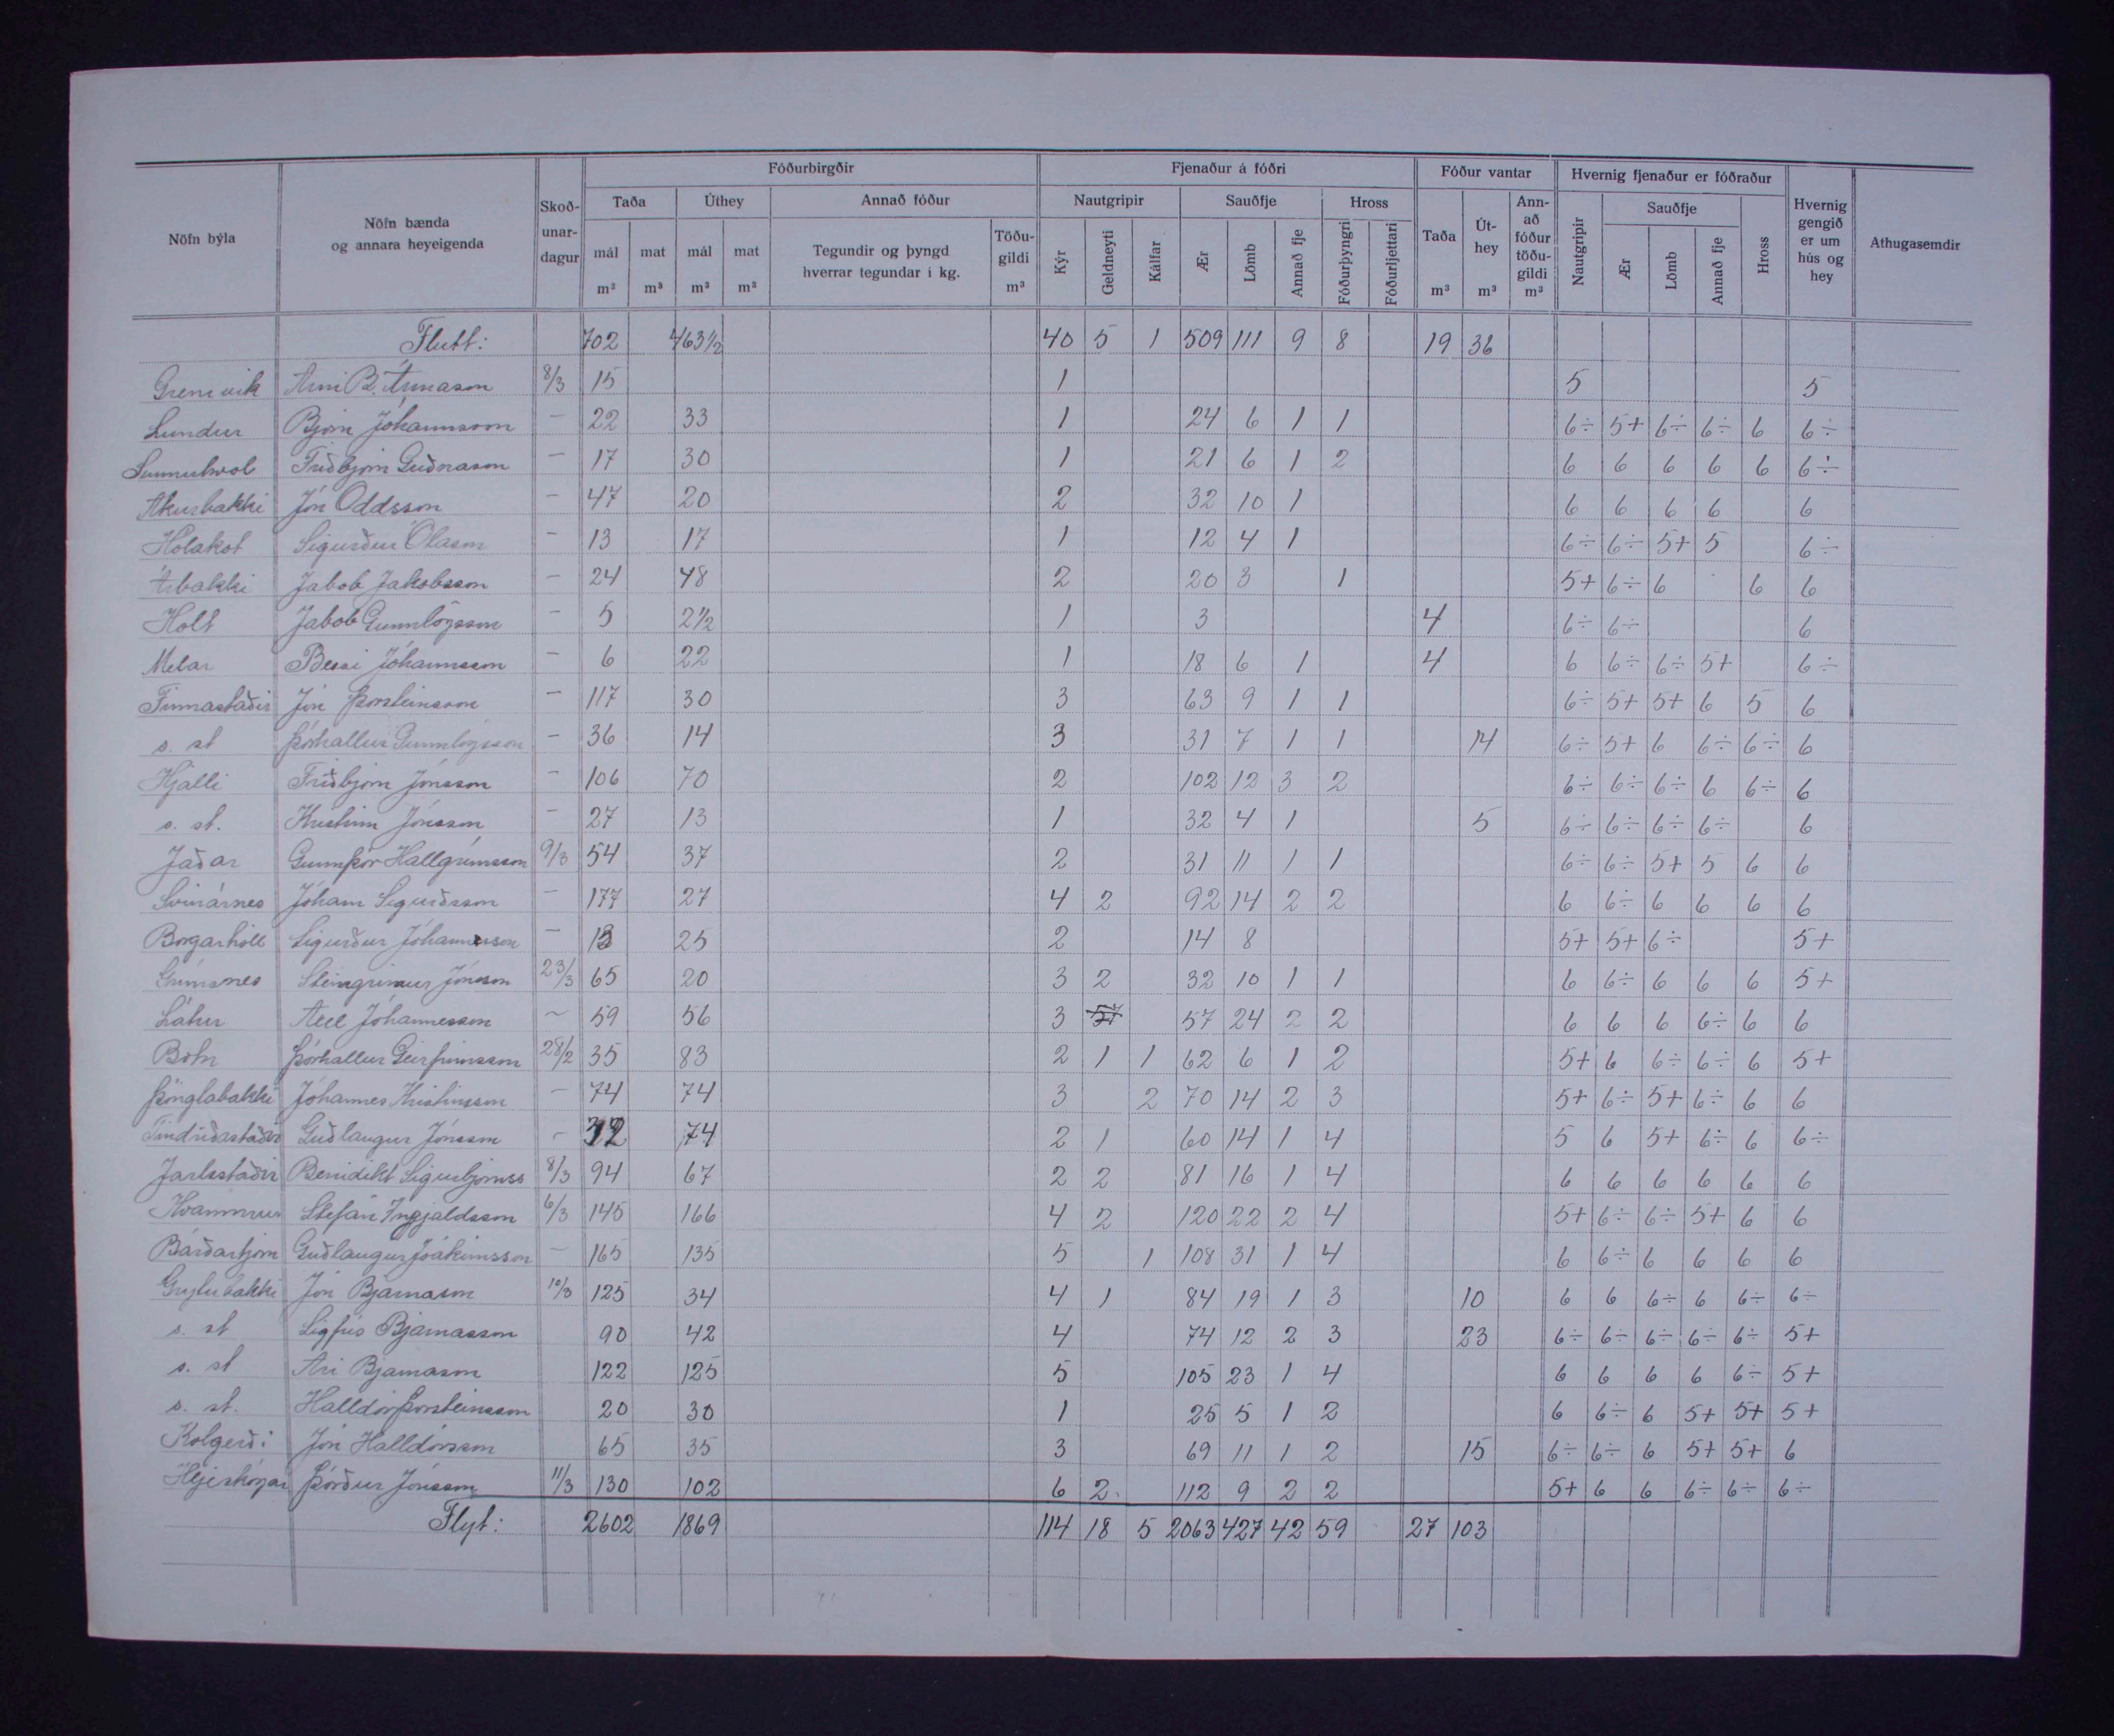 Nöfn býla | Nöfn bænda og annara heyeigenda | Skoð-unar-dagur | Fóðurbirgðir | Fjenaður á fóðri | Fóður vantar | Hvernig fjenaður er fóðraður | Hvernig gengið er um hús og hey | Athugasemdir
Taða | Úthey | Annað fóður | Nautgripir | Sauðfje | Hross | Taða m³ | Út-hey m³ | Ann-að fóður töðu-gildi m³ | Nautgripir | Sauðfje | Hross
mál m³ | mat m³ | mál m³ | mat m³ | Tegundir og þyngd hverrar tegundar í kg. | Töðu-gildi m³ | Kýr | Geldneyti | Kálfar | Ær | Lömb | Annað fje | Fóðurþyngri | Fóðurljettari | Ær | Lömb | Annað fje
Flutt: 702 463½ 40 5 1 509 111 9 8 19 36
Grenivik Árni B. Árnason 8/3 15 1 5 5
Lundur Björn Jóhannsson — 22 33 1 24 6 1 1 6÷ 5+ 6÷ 6÷ 6 6÷
Friðbjörn Guðnason — 17 30 1 21 6 1 2 6 6 6 6 6 6÷
Akurbakki Jón Oddsson — 47 20 2 32 10 1 6 6 6 6 6
Hólakot Sigurður Ólason — 13 17 1 12 4 1 6÷ 6÷ 5+ 5 6÷
Árbakki Jakob Jakobsson — 24 48 2 20 3 1 5+ 6÷ 6 6 6
Holt Jakob Gunnlögsson — 5 2½ 1 3 4 6÷ 6÷ 6
Melar Bessi Jóhannsson — 6 22 1 18 6 1 4 6 6÷ 6÷ 5+ 6÷
Finnastaðir Jón Þorsteinsson — 117 30 3 63 9 1 1 6÷ 5+ 5+ 6 5 6
s. st Þórhallur Gunnlögsson — 36 14 3 31 7 1 1 14 6÷ 5+ 6 6÷ 6÷ 6
Hjalli Friðbjörn Jónsson — 106 70 2 102 12 3 2 6÷ 6÷ 6÷ 6 6÷ 6
s. st. Kristinn Jónsson — 27 13 1 32 4 1 5 6÷ 6÷ 6÷ 6÷ 6
Jaðar Gunnþór Hallgrímsson 9/3 54 37 2 31 11 1 1 6÷ 6÷ 5+ 5 6 6
Svínárnes Jóhann Sigurðsson — 177 27 4 2 92 14 2 2 6 6÷ 6 6 6 6
Borgarhóll Sigurður Jóhannesson — 25 2 14 8 5+ 5+ 6÷ 5+
Grímsnes Steingrímur Jónsson 23/3 65 20 3 2 32 10 1 1 6 6÷ 6 6 6 5+
Látur Axel Jóhannesson ~ 59 56 3 57 24 2 2 6 6 6 6÷ 6 6
Botn Þórhallur Geirfinnsson 28/2 35 83 2 1 1 62 6 1 2 5+ 6 6÷ 6÷ 6 5+
Þönglabakki Jóhannes Kristinsson — 74 74 3 2 70 14 2 3 5+ 6÷ 5+ 6÷ 6 6
Tindriðastaðir Guðlaugur Jónsson — 32 74 2 1 60 14 1 4 5 6 5+ 6÷ 6 6÷
Jarlsstaðir Benidikt Sigurbjörnss 8/3 94 67 2 2 81 16 1 4 6 6 6 6 6 6
Hvammur Stefán Ingjaldsson 6/3 145 166 4 2 120 22 2 4 5+ 6÷ 6÷ 5+ 6 6
Bárðartjörn Guðlaugur Jóakimsson — 165 135 5 1 108 31 1 4 6 6÷ 6 6 6 6
Grýtubakki Jón Bjarnason 10/3 125 34 4 1 84 19 1 3 10 6 6 6÷ 6 6÷ 6÷
s. st Sigfús Bjarnasson 90 42 4 74 12 2 3 23 6÷ 6÷ 6÷ 6÷ 6÷ 5+
s. st Ari Bjarnason 122 125 5 105 23 1 4 6 6 6 6 6÷ 5+
s. st. Halldór Þorsteinsson 20 30 1 25 5 1 2 6 6÷ 6 5+ 5+ 5+
Kolgerði Jón Halldórsson 65 35 3 69 11 1 2 15 6÷ 6÷ 6 5+ 5+ 6
Þórður Jónsson 11/3 130 102 6 2 112 9 2 2 5+ 6 6 6÷ 6÷ 6÷
Flyt: 2602 1869 114 18 5 2063 427 42 59 27 103